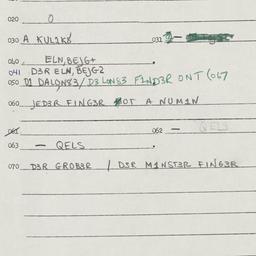 020 O
030 A KUL1K8 031 —
040 ELN,BEJG+
041 D3R ELN,BEJG2
050 DALQNS3/D3LONS3 F1ND3R ONT (067
060 JED3R FING3R NOT A NUM1N
061 062 —
063 — QELS
070 D3R GROB3R / D3R M1NST3R FING3R